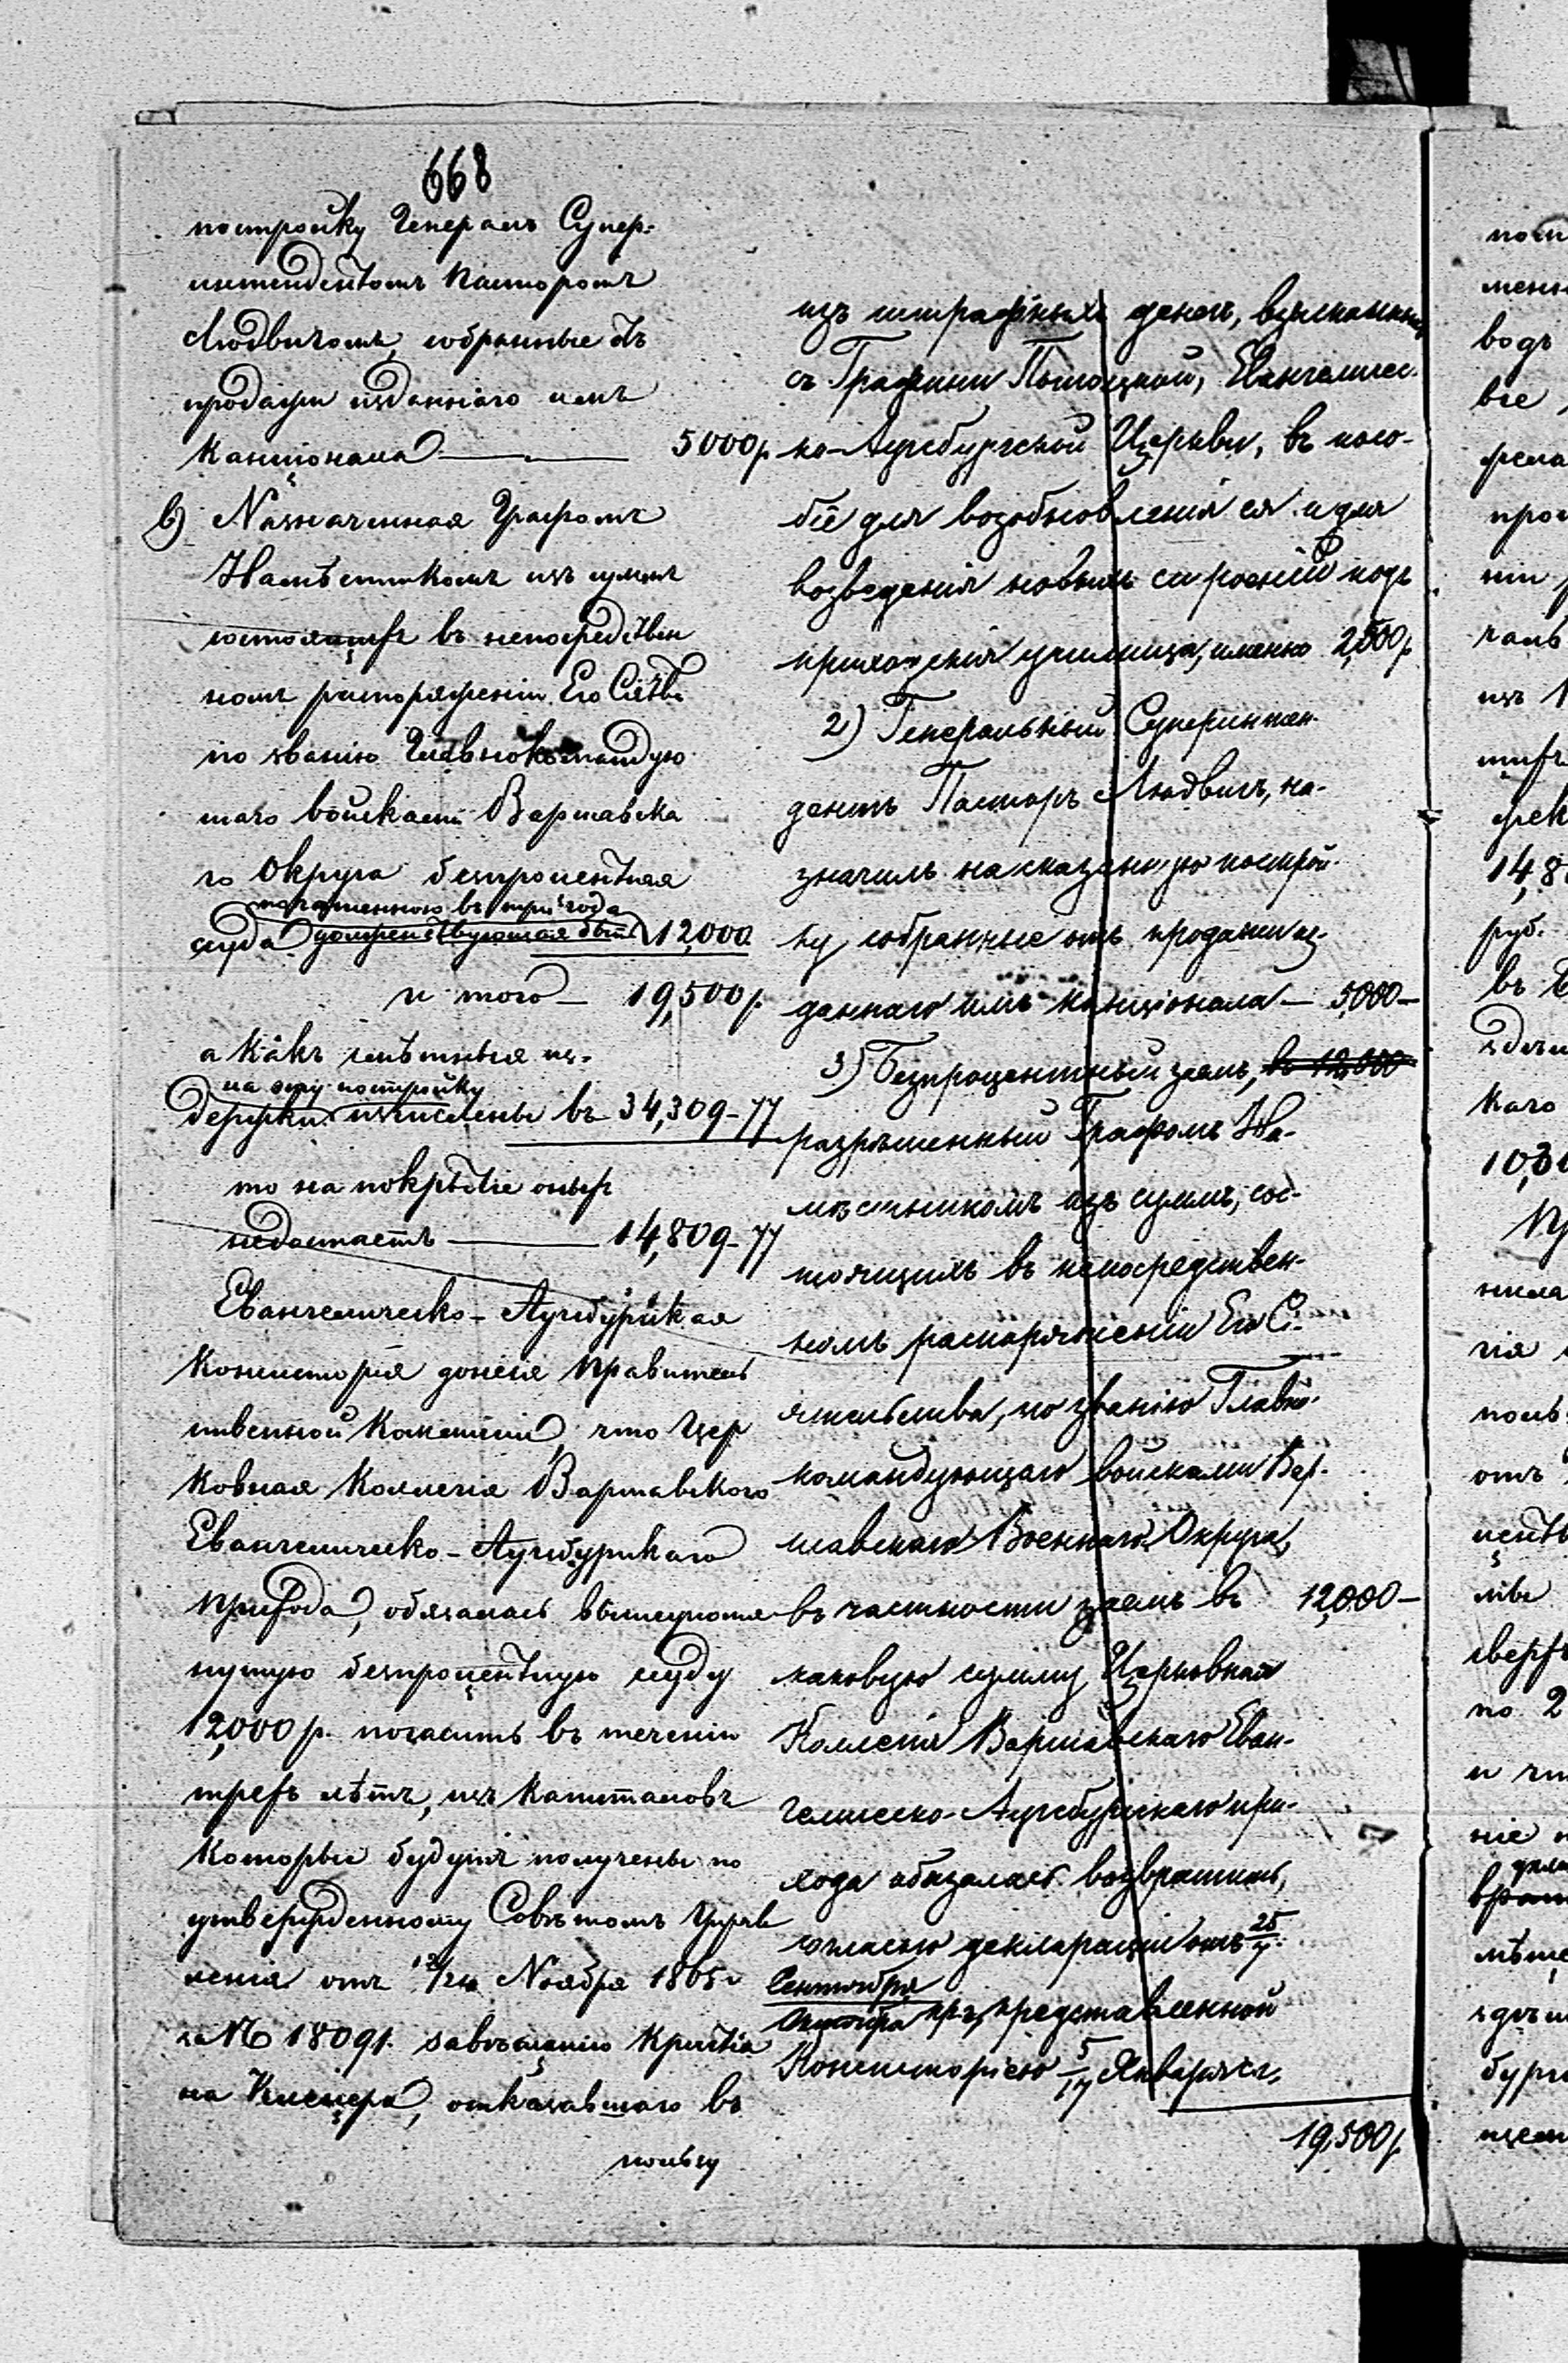 668
постройку Генералъ Супер-
интендентомъ Пасторомъ
Людвигомъ, собранные отъ
продажи изданнаго имъ
Канціонала — 5000 р.
в) Назначенная Графомъ
Намѣстникомъ изъ суммъ
состоящихъ въ непосредствен
номъ распоряженіи Его Сіятва
по званію Главнокомандую
щаго войсками Варшавска
го Округа безпроцентная
погашенною въ три года
суда долженствующая быть 12,000
и того — 19,500 р.
а какъ смѣтныя из-
на эту постройку
держки изчислены въ 34,309-77
то на покрытіе оныхъ
недостаетъ — 14,809-77
Евангелическо-Аугсбургская
Консисторія донесла Правитель
ственной Коммисіи, что Цер
ковная Коллегія Варшавского
Евангелическо-Аугсбургскаго
Прихода, обязалась вышеупомя
нутую безпроцентную ссуду
12,000 р. погасить въ теченіи
трехъ лѣтъ, изъ Капиталовъ
Которые будутъ получены по
утвержденному Совѣтомъ Управ
ленія отъ 12/24 Ноября 1865 г.
за № 18091. завѣщанію Кристіа
на отказавшаго въ
пользу
изъ штрафныхъ денегъ, взысканныхъ
съ Графини Евангеличес-
ко-Аугсбургской Церкви, въ посо-
біе для возобновленія ея и для
возведенія новыхъ строеній подъ
приходскія училища, именно 2,500 р.
2) Генеральный Суперинтен-
дентъ Пасторъ Людвигъ, на-
значилъ на сказанную построй-
ку собранные отъ продажи из-
даннаго имъ канціонала — 5,000 —
3) Безпроцентный заемъ, въ 12,000
разрѣшенный Графомъ На-
мѣстникомъ изъ суммъ, сос-
тоящихъ въ непосредствен-
номъ распоряженіи Его Сі-
ятельства, по званію Главно-
командующаго войсками Вар-
шавскаго Военнаго Округа,
въ частности заемъ въ 12,000 —
каковую сумму Церковная
Коллегія Варшавскаго Еван-
гелическо-Аугсбургскаго при-
хода обязалась возвратить,
согласно декларации отъ 25/7
Сентября
Октября пр. г., представленной
Консисторіею 5/17 Января с. г.,
19,500 р.